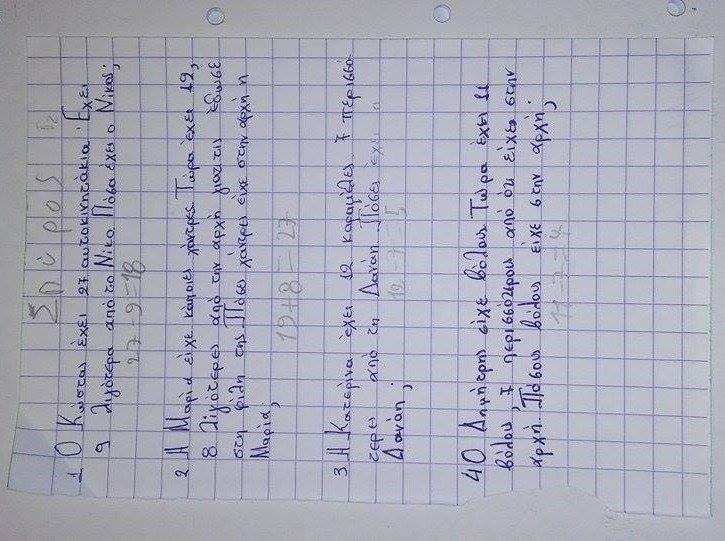 Σπύρος
1 Ο Κώστας έχει 27 αυτοκινητάκια. Έχει
9 λιγότερα από το Νίκο. Πόσα έχει ο Νίκος;
27-9=18
2 Η Μαρία είχε κάποιες χάντρες. Τώρα έχει 19,
8 λιγότερες από την αρχή γιατί τις έδωσε
στη φίλη της. Πόσες χάντρες είχε στην αρχή η
Μαρία;
19+8=27
3 Η Κατερίνα έχει 12 καραμέλες. 7 περισσό-
τερες από τη Δανάη. Πόσες έχει η
Δανάη;
12-7=5
4 Ο Δημήτρης είχε βόλους. Τώρα έχει 11
βόλους, 7 περισσότερους από ότι είχε στην
αρχή. Πόσους βόλους είχε στην αρχή;
11-7=4